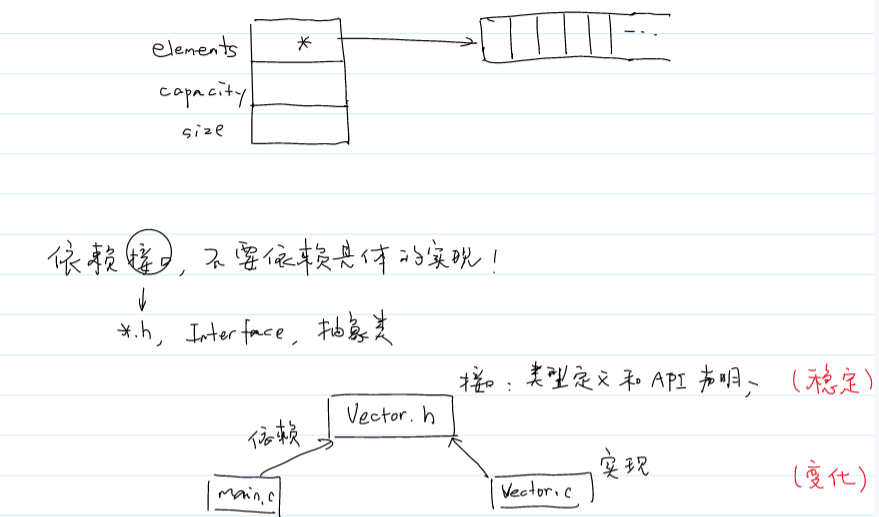 elements *
...
capacity
size
依赖接口, 不要依赖具体的实现!
*.h, Interface, 抽象类
接口: 类型定义和 API 声明; (稳定)
Vector.h
依赖
实现 (变化)
main.c Vector.c